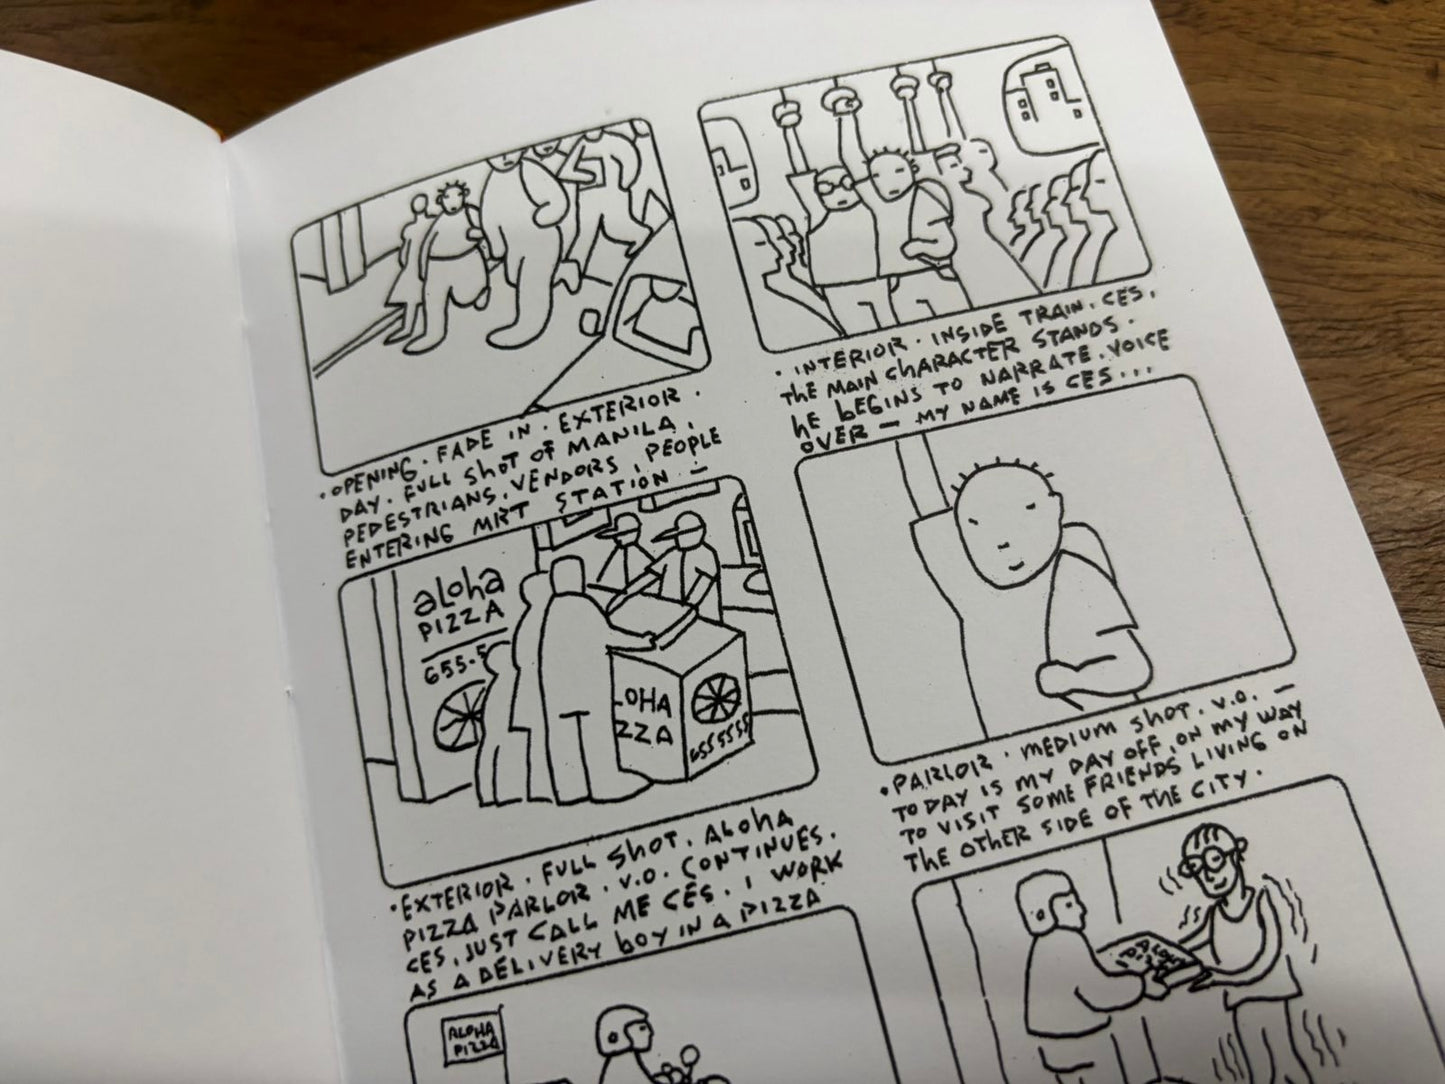 · OPENING. FADE IN · EXTERIOR.
DAY. FULL SHOT OF MANILA,
PEDESTRIANS, VENDORS, PEOPLE
ENTERING MRT STATION —
· INTERIOR · INSIDE TRAIN. CES,
THE MAIN CHARACTER STANDS.
HE BEGINS TO NARRATE. VOICE
OVER — MY NAME IS CES...
aloha
PIZZA
655-5
LOHA
ZZA
6555555
· EXTERIOR. FULL SHOT. ALOHA
PIZZA PARLOR. V.O. CONTINUES.
CES, JUST CALL ME CES. I WORK
AS A DELIVERY BOY IN A PIZZA
· PARLOR · MEDIUM SHOT. V.O. —
TODAY IS MY DAY OFF, ON MY WAY
TO VISIT SOME FRIENDS LIVING ON
THE OTHER SIDE OF THE CITY.
ALOHA
PIZZA